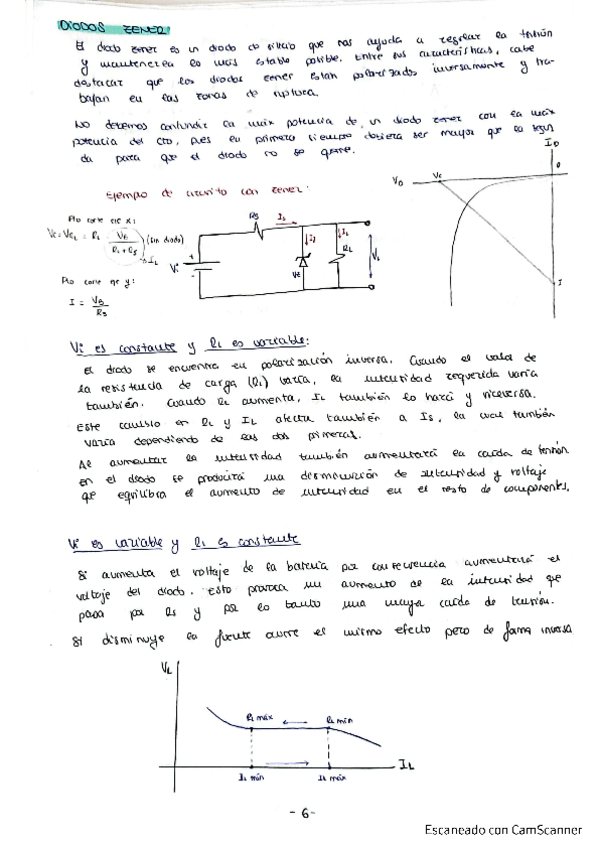 DIODOS ZENER:
El diodo zener es un diodo de silicio que nos ayuda a regular la tensión
y mantenerla lo más estable posible. Entre sus características, cabe
destacar que los diodos zener están polarizados inversamente y tra-
bajan en las zonas de ruptura.
No debemos confundir la máx potencia de un diodo zener con la máx
potencia del cto, pues en primero siempre debiera ser mayor que la segun
da para que el diodo no se queme.
Ejemplo de circuito con zener:
Pto corte eje x:
Vc=VRL = RL VB / RL + RS (sin diodo)
IL
Pto corte eje y:
I = VB / RS
RS
IS
Vi
+
-
Vz
IL
RL
VL
ID
VD
Vc
0
I
Vi es constante y RL es variable:
El diodo se encuentra en polarización inversa. Cuando el valor de
la resistencia de carga (RL) varía, la intensidad requerida varía
también. Cuando RL aumenta, IL también lo hará y viceversa.
Este cambio en RL y IL afecta también a IS, la cual también
varía dependiendo de las dos primeras.
Al aumentar la intensidad también aumentará la caída de tensión
en el diodo se producirá una disminución de intensidad y voltaje
que equilibra el aumento de intensidad en el resto de componentes.
Vi es variable y RL es constante
Si aumenta el voltaje de la batería por consecuencia aumentará el
voltaje del diodo. Esto provoca un aumento de la intensidad que
pasa por RS y por lo tanto una mayor caída de tensión.
Si disminuye la fuente ocurre el mismo efecto pero de forma inversa
VL
RL máx
RL mín
IL
IL mín
IL máx
- 6 -
Escaneado con CamScanner